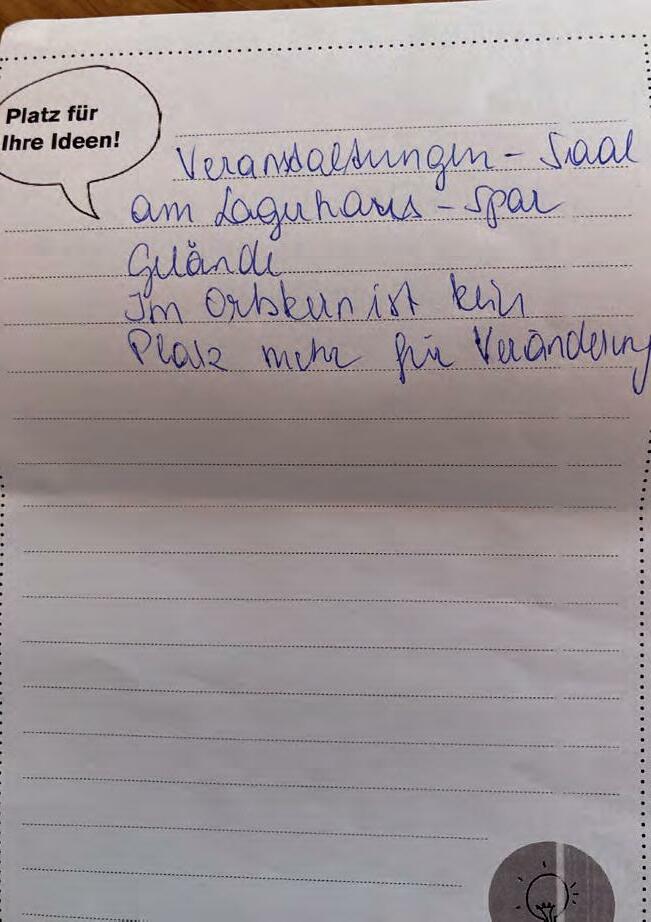 Platz für
Ihre Ideen!
Veranstaltungen - Saal
am Lagerhaus - Spar
Gelände
Im Ortskern ist kein
Platz mehr für Veränderung